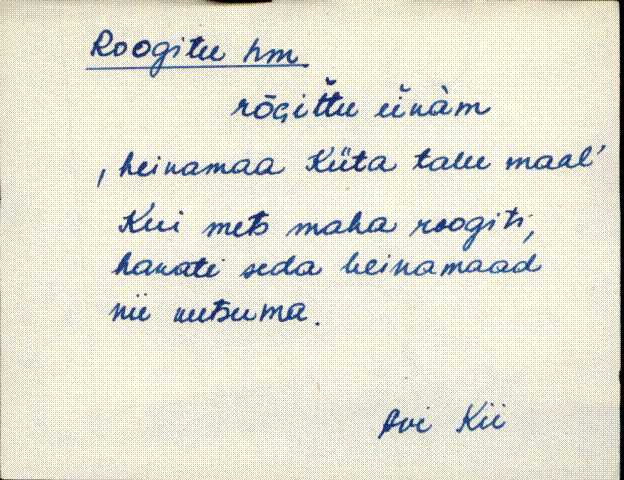 Roogitu hm.
rōgittu einàm
‚heinamaa Küta talu maal’
Kui mets maha roogiti,
hakati seda heinamaad
nii kutsuma.
Kii